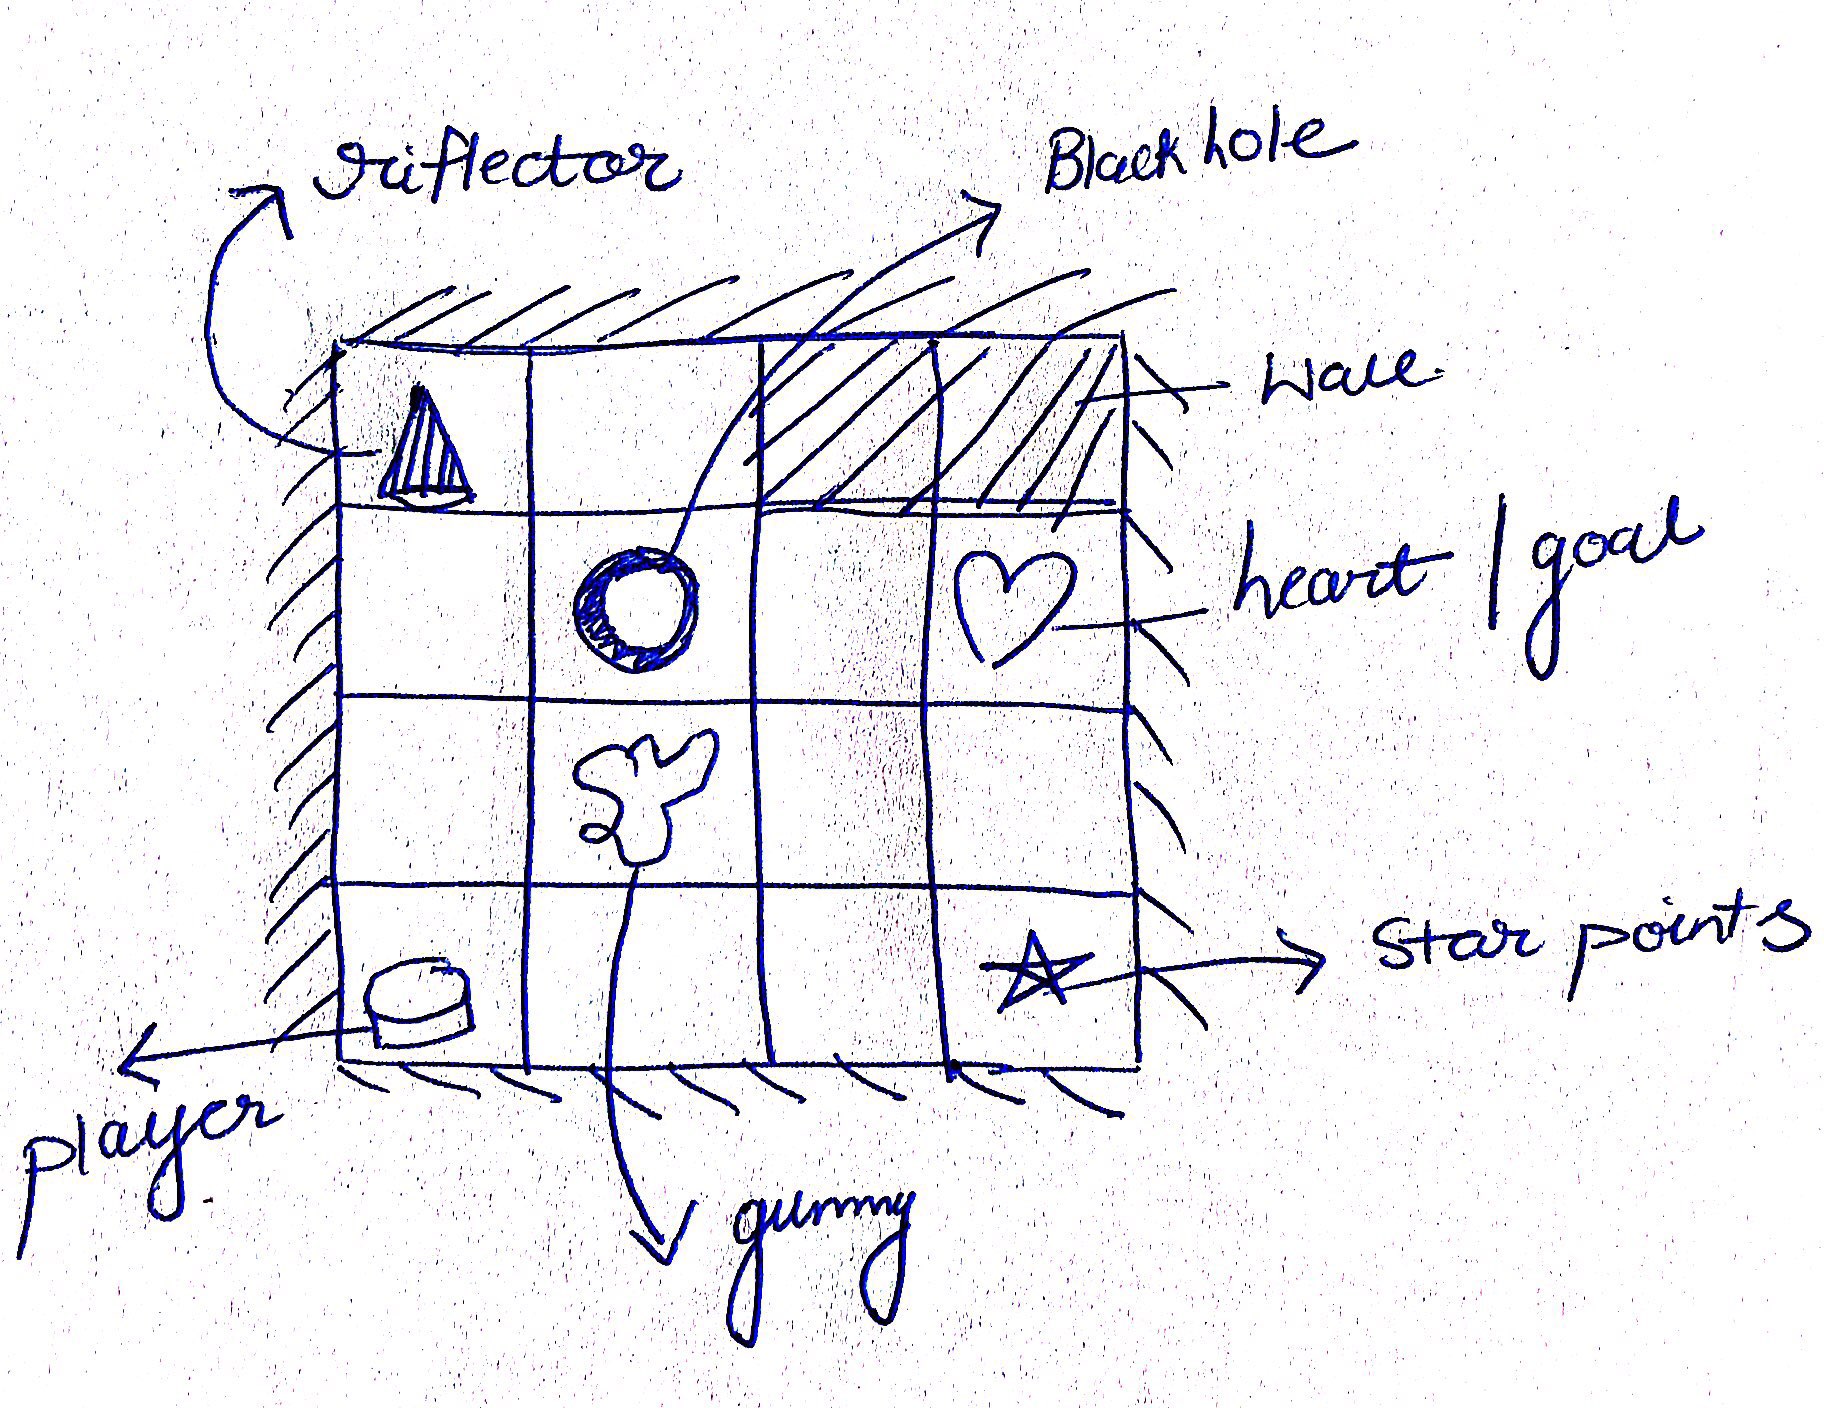 riflector
Black hole
wall
heart / goal
star points
player
gummy